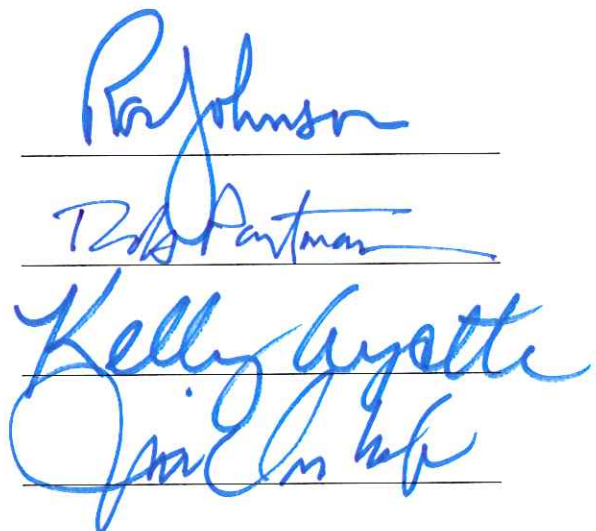 Ron Johnson
Rob Portman
Kelly Ayotte
Jim Inhofe